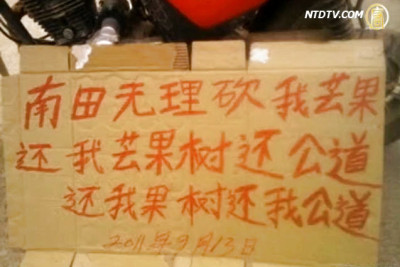 NTDTV.COM
南田无理砍我芒果
还我芒果树还公道
还我果树还我公道
2011年9月13日